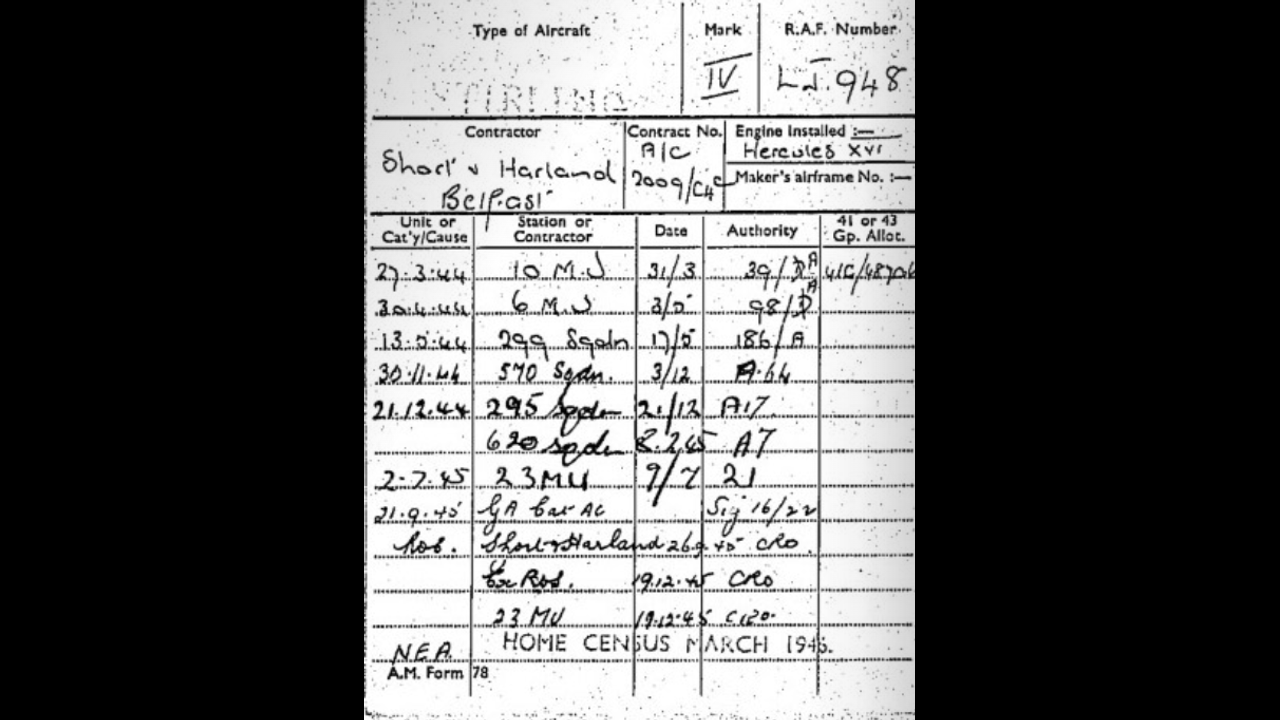 Type of Aircraft Mark R.A.F. Number
STIRLING IV LJ.948
Contractor Contract No. Engine Installed :—
Short & Harland A/C Hercules XVI
Belfast 2009/C4C Maker's airframe No. :—
Unit or Cat'y/Cause Station or Contractor Date Authority 41 or 43 Gp. Allot.
27.3.44 10 M.U 31/3 39/A 41G/
30.4.44 6 M.U 3/5 98/A
13.5.44 299 Sqdn 17/5 186/A
30.11.44 570 Sqdn. 3/12 A.64
21.12.44 295 Sqdn 21/12 A17
620 sqdn 8.2.45 A7
2.7.45 23 MU 9/7 21
21.9.45 GA Cat AC Sig 16/22
Ros. Short & Harland 26.9.45 CRO
Ex Ros. 19.12.45 CRO
23 MU 19.12.45
HOME CENSUS MARCH 1946.
N.E.A.
A.M. Form 78